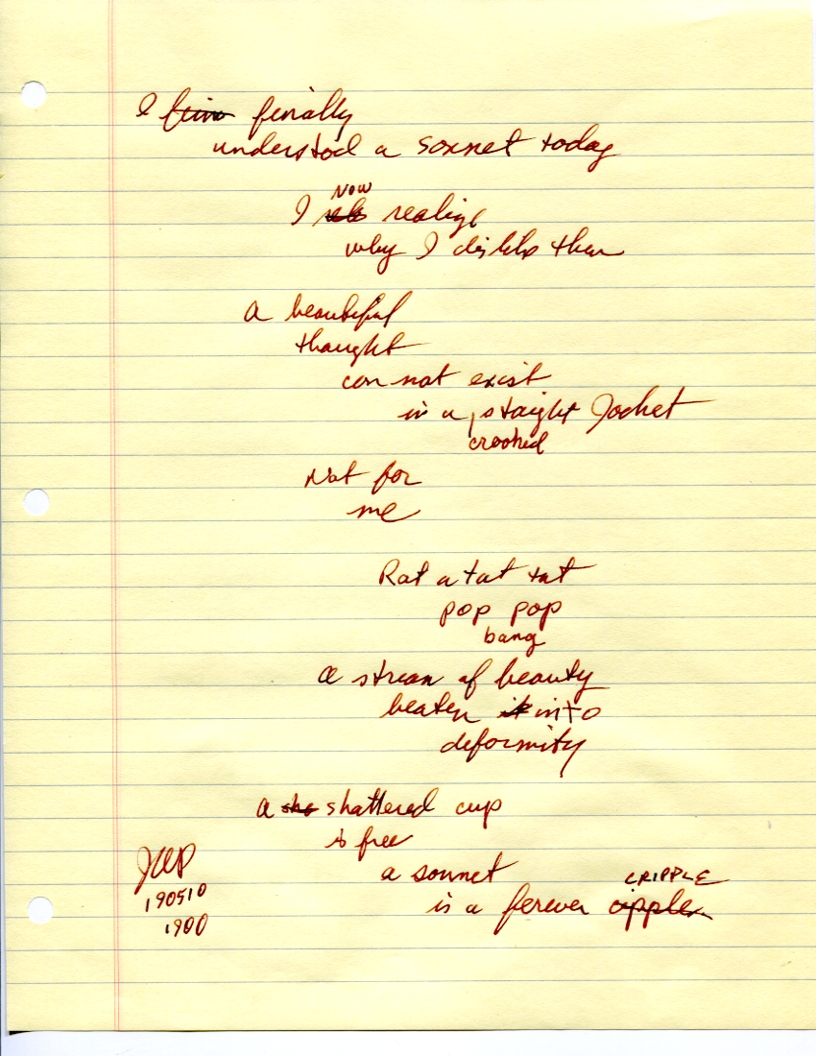 I finally
understood a sonnet today
NOW
I realize
why I dislike them
a beautiful
thought
can not exist
in a staight Jacket
crooked
Not for
me
Rat a tat tat
pop pop
bang
a stream of beauty
beaten into
deformity
a shattered cup
is free
a sonnet
CRIPPLE
is a forever
JWP
190510
1900